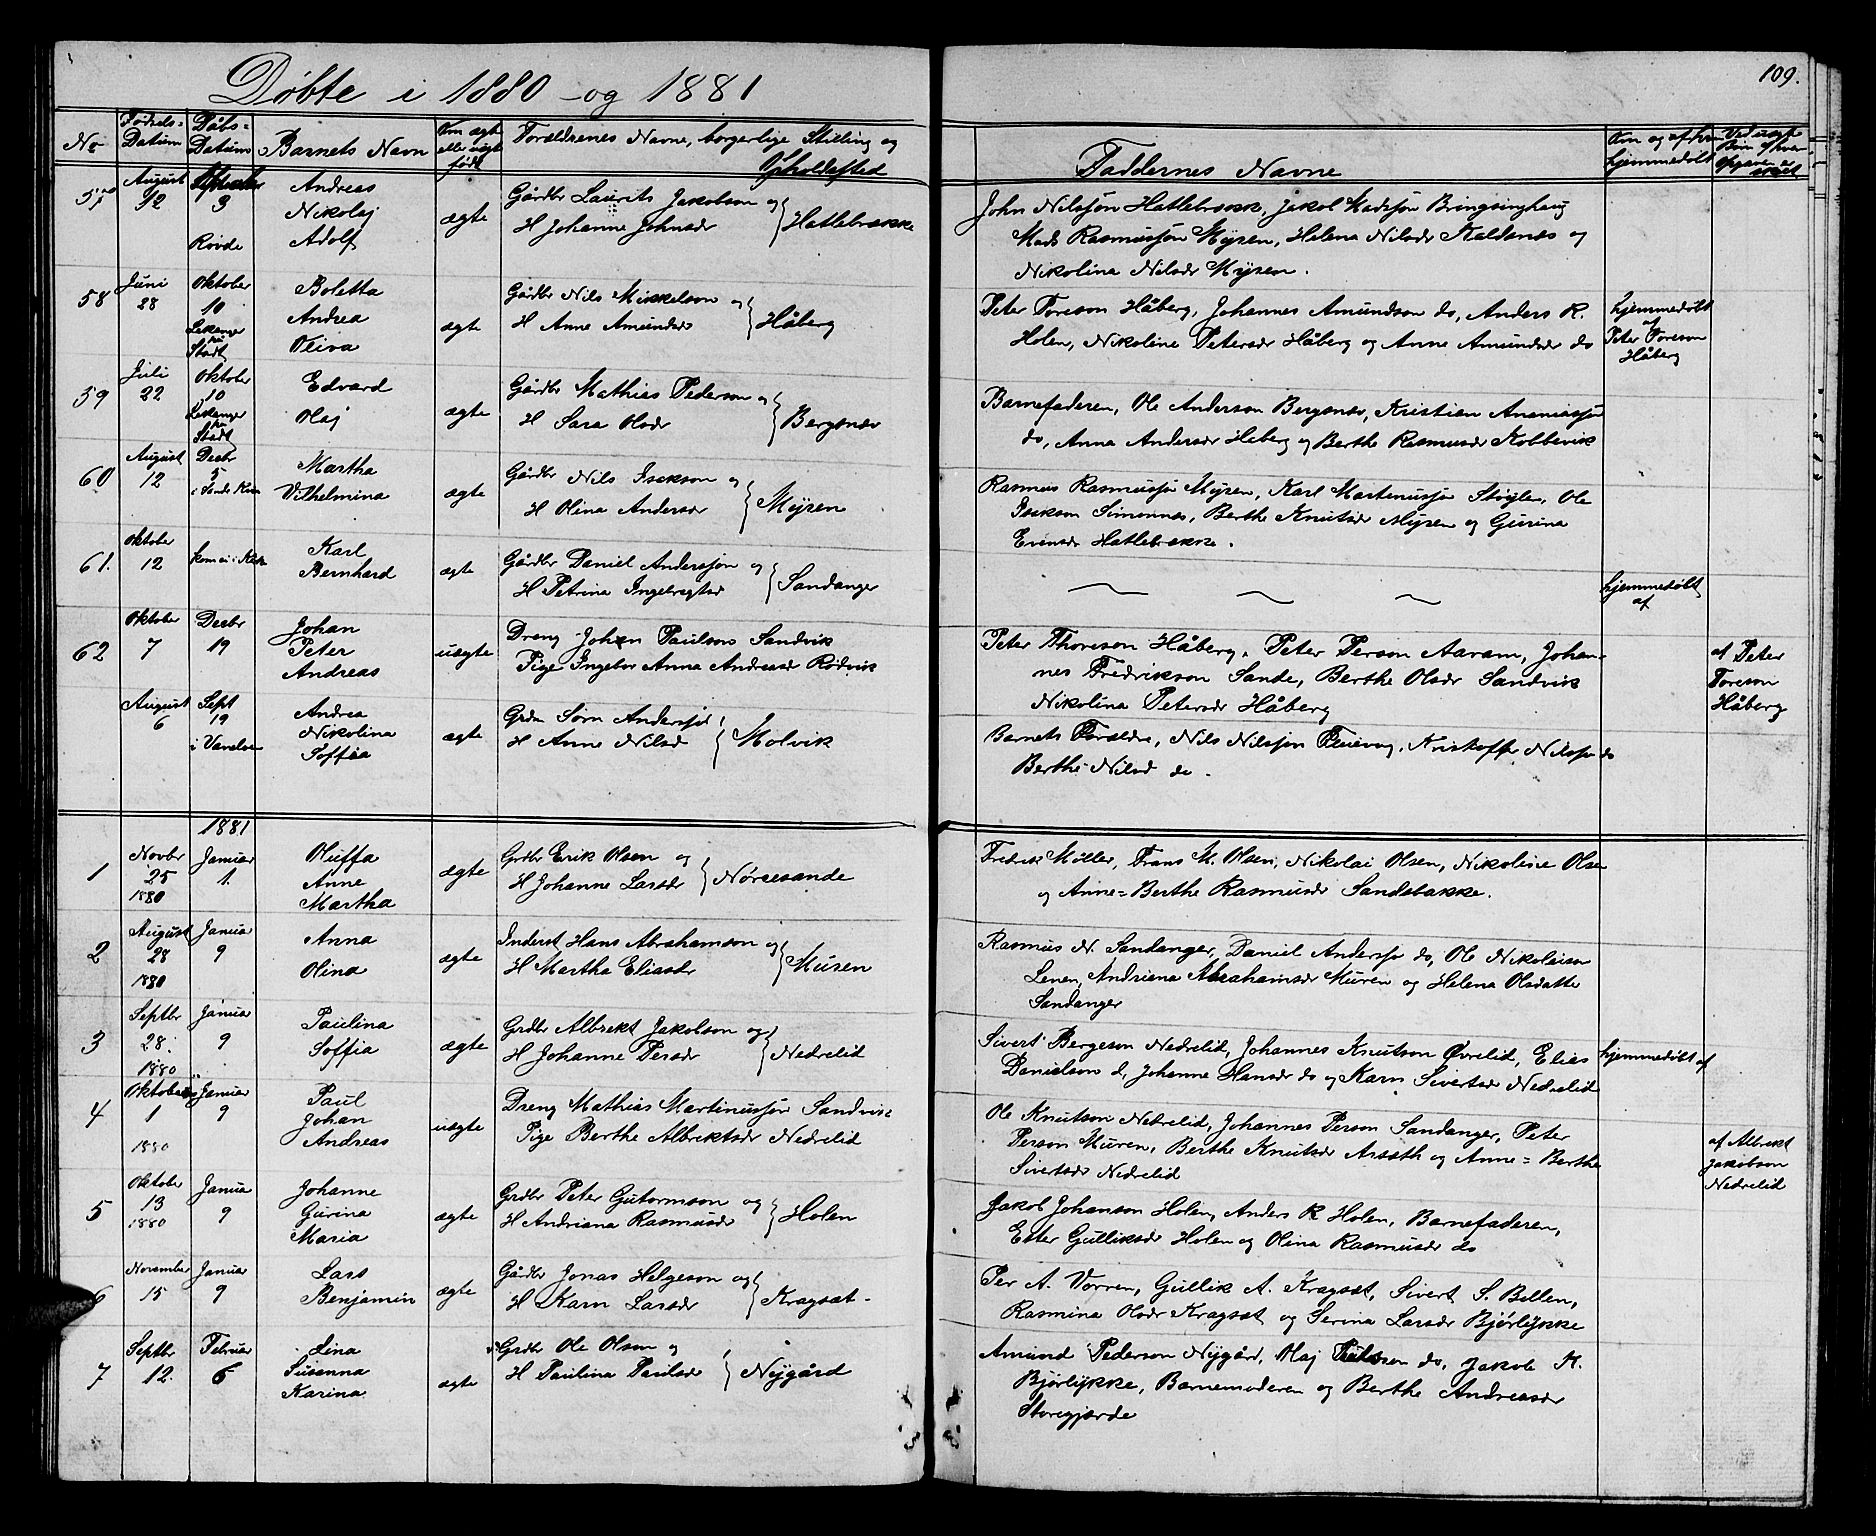 Døbte i 1880 og 1881
109.
No
Fødsels-Datum
Døbs-Datum
Barnets Navn
Om ægte eller uægte født
Forældrenes Navne, borgerlige Stilling og Opholdssted
Faddernes Navne
Om og af hvem hjemmedøbt
57 August 12 September 3 Røvde
Andreas Nikolaj Adolf
ægte
Gårdbr Laurits Jakobson og
H Johanne Johnsdr } Hatlebrække
John Nilssøn Hatlebrækk, Jakob Madssøn Bringsinghaug
Mads Rasmussøn Myren, Helena Nilsdr Kaldenæs og
Nikolina Nilsdr Myren.
58 Juni 28 Oktober 10 Lekanger på Stadt
Boletta Andrea Oliva
ægte
Gårdbr Nils Mikkelson og
H Anne Amundsdr } Håberg
Peter Toreson Håberg, Johannes Amundson do, Anders R.
Holen, Nikoline Petersdr Håberg og Anne Amundsdr do
hjemmedøbt af Peter Toreson Håberg
59 Juli 22 Oktober 10 Lekanger på Stadt
Edvard Olaj
ægte
Gårdbr Mathias Pederson og
H Sara Olsdr } Bergsnæs
Barnefaderen, Ole Anderson Bergsnæs, Kristian Ananiassøn
do, Anna Andersdr Heberg og Berthe Rasmusdr Kobbevik
60 August 12 Decbr 5 i Sande Kirke
Martha Vilhelmina
ægte
Gårdbr Nils Isakson og
H Olina Andersdr } Myren
Rasmus Rasmussøn Myren, Karl Martinussøn Støylen, Ole
Isakson Simonnæs, Berthe Knutsdr Myren og Gurina
Evensdr Hatlebrække.
61. Oktober 12 kom ei i Kirke
Karl Bernhard
ægte
Gårdbr Daniel Anderssøn og
H Petrina Ingebregtsd } Sandanger
hjemmedøbt af
62 Oktober 7 Decbr 19
Johan Peter Andreas
uægte
Dreng Johan Paulsøn Sandvik
Pige Ingebor Anna Andreasdr Rødvik
Peter Thoreson Håberg, Peter Person Aaram, Johan-
nes Fredrikson Sande, Berthe Olsdr Sandvik
Nikolina Petersdr Håberg
af Peter Toreson Håberg
August 6 Sept 19 i Vanelven
Andrea Nikolina Soffia
ægte
Grdm Sørn Anderssøn
H Anne Nilsd } Molvik
Barnets Forældre, Nils Nilssøn Fleievog, Kristoffr Nilssøn do
Berthe Nilsd do.
1881
1 Novbr 25 1880 Januar 1.
Oluffa Anne Martha
ægte
Grdbr Erik Olsen og
H Johanne Larsdr } Nørvesande
Fredrik Møller, Frans M. Olsen, Nikolai Olsen, Nikoline Olsen
og Anne-Berthe Rasmusdr Sandsbakke.
2 August 28 1880 Januar 9
Anna Olina
ægte
Inderst Hans Abrahamson og
H Martha Eliasdr } Muren
Rasmus N. Sandanger, Daniel Anderssø do, Ole Nikolaison
Lenen, Andriana Abrahamsdr Muren og Helena Olsdatte
Sandanger
3 Septbr 28. 1880 Januar 9
Paulina Soffia
ægte
Grdbr Albrekt Jakobson og
H Johanne Persdr } Nedrelid
Sivert Bergeson Nedrelid, Johannes Knutson Øvrelid, Elias
Danielson d, Johanne Hansdr do og Karn Sivertsdr Nedrelid
hjemmedøbt af
4 Oktober 1 1880 Januar 9
Paul Johan Andreas
uægte
Dreng Mathias Martinussøn Sandvik
Pige Berthe Albrektsdr Nedrelid
Ole Knutson Nedrelid, Johannes Person Sandanger, Peter
Person Muren, Berthe Knutsdr Arsæth og Anne-Berthe
Sivertsdr Nedrelid
af Albrekt Jakobson Nedrelid
5 Oktober 13 1880 Januar 9
Johanne Gurina Maria
ægte
Grdbr Peter Gutormson og
H Andriana Rasmusdr } Holen
Jakob Johanson Holen, Anders R Holen, Barnefaderen,
Ester Gulliksdr Holen og Olina Rasmusdr do
6 November 15 Januar 9
Lars Benjamin
ægte
Gårdbr Jonas Helgeson og
H Karn Larsdr } Kragsæt
Per A. Vorren, Gullik A. Kragsæt, Sivert S. Bellen,
Rasmina Olsdr Kragsæt og Serina Larsdr Bjørlykke
7 Septbr 12. Februar 6
Lina Susanna Karina
ægte
Grdbr Ole Olson og
H Paulina Paulsdr } Nygård
Amund Pederson Nygård, Olaj Paulsen do, Jakob K.
Bjørlykke, Barnemoderen og Berthe Andreasdr
Storegjærde